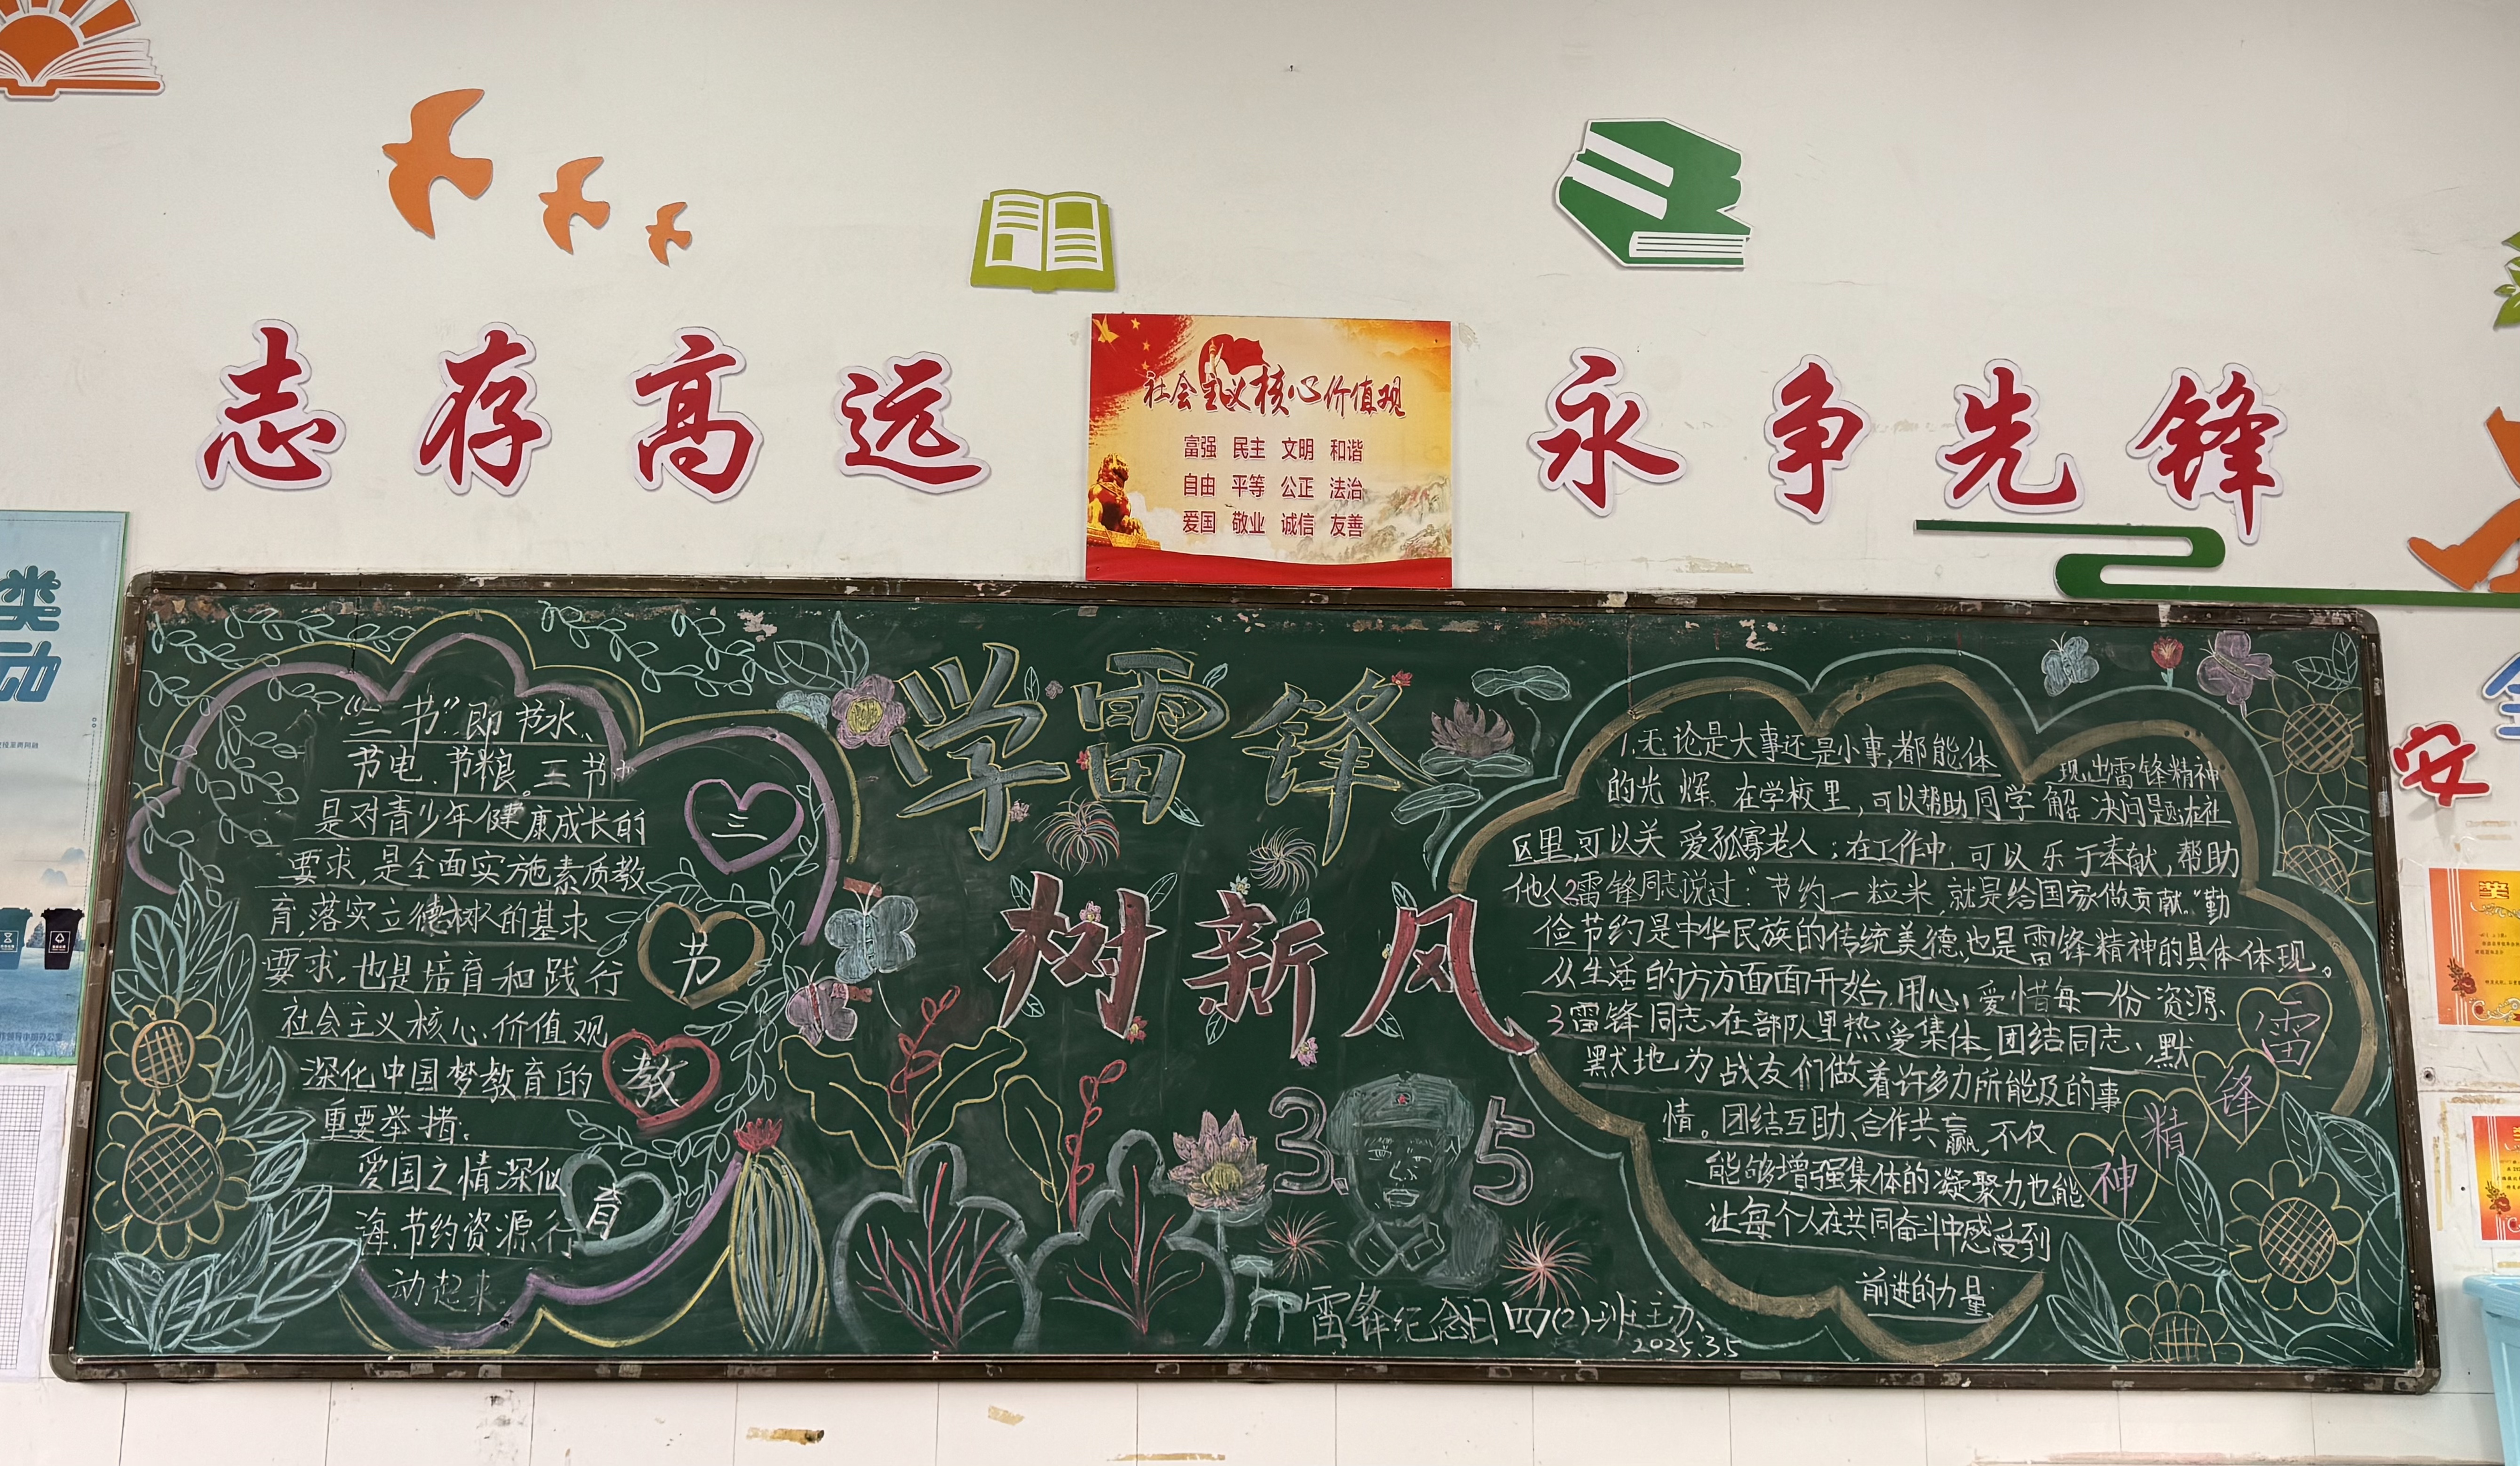 志存高远
永争先锋
社会主义核心价值观
富强 民主 文明 和谐
自由 平等 公正 法治
爱国 敬业 诚信 友善
类
动
安
奖
学雷锋
树新风
3.5
“三节”即节水、
节电、节粮。三节
是对青少年健康成长的
要求，是全面实施素质教
育，落实立德树人的基本
要求，也是培育和践行
社会主义核心价值观
深化中国梦教育的
重要举措。
爱国之情深似
海，节约资源行
动起来
三
节
教
育
1.无论是大事还是小事，都能体现出雷锋精神
的光辉。在学校里，可以帮助同学解决问题；在社
区里，可以关爱孤寡老人；在工作中，可以乐于奉献，帮助
他人2雷锋同志说过：“节约一粒米，就是给国家做贡献。”勤
俭节约是中华民族的传统美德，也是雷锋精神的具体体现。
从生活的方方面面开始，用心爱惜每一份资源、
3雷锋同志在部队里热爱集体，团结同志，默
默地为战友们做着许多力所能及的事
情。团结互助、合作共赢，不仅
能够增强集体的凝聚力，也能
让每个人在共同奋斗中感受到
前进的力量。
雷
锋
精
神
雷锋纪念日四(2)班主办、
2025.3.5